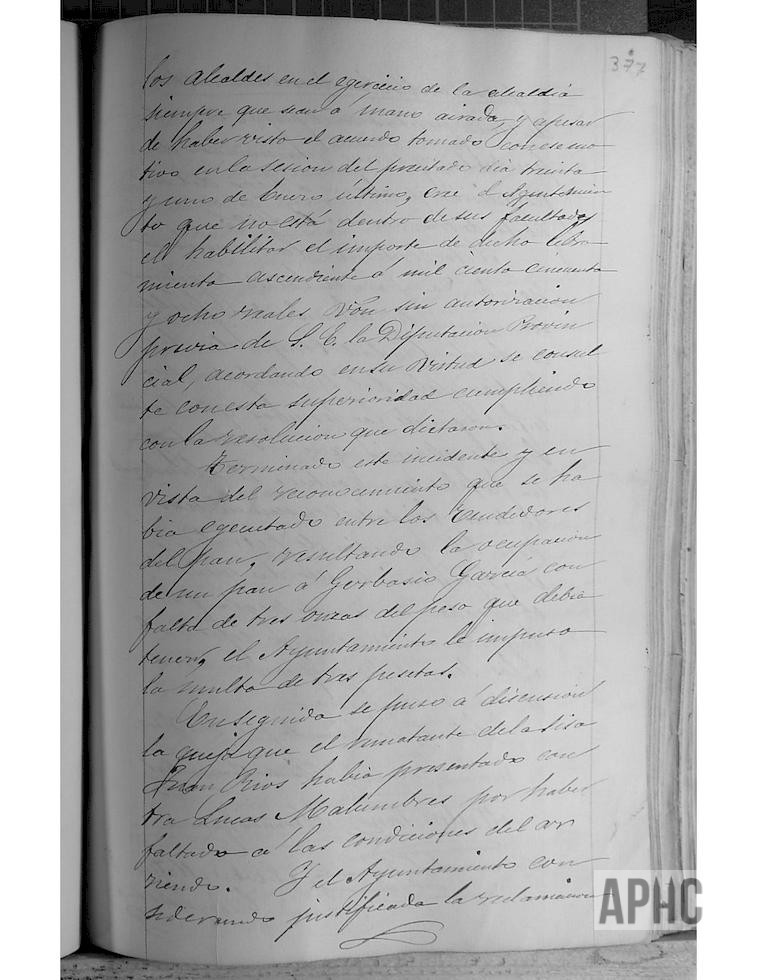 377
los alcaldes en el egercicio de la alcaldia
siempre que sean á mano airada, y apesar
de haber visto el acuerdo tomado con ese mo
tivo en la sesion del precitado dia treinta
y uno de Enero último, cree el Ayuntamien
to que no está dentro de sus facultades
el habilitar el importe de dicho libra
miento ascendiente á mil ciento cincuenta
y ocho reales von sin autorizacion
previa de S. E. la Diputacion Provin
cial, acordando en su virtud se consul
te con esta superioridad cumpliendo
con la resolucion que dictaron.
Terminado este incidente y en
vista del reconocimiento que se ha
bia egecutado entre los vendedores
del pan, resultando la ocupacion
de un pan á Gerbasio Garcia con
falta de tres onzas del peso que debia
tener, el Ayuntamiento le impuso
la multa de tres pesetas.
En seguida se puso á discusion
la queja que el rematante de la sisa
Juan Rios habia presentado con
tra Lucas Malumbres por haber
faltado á las condiciones del ar
riendo. Y el Ayuntamiento con
siderando justificada la reclamacion
APHC